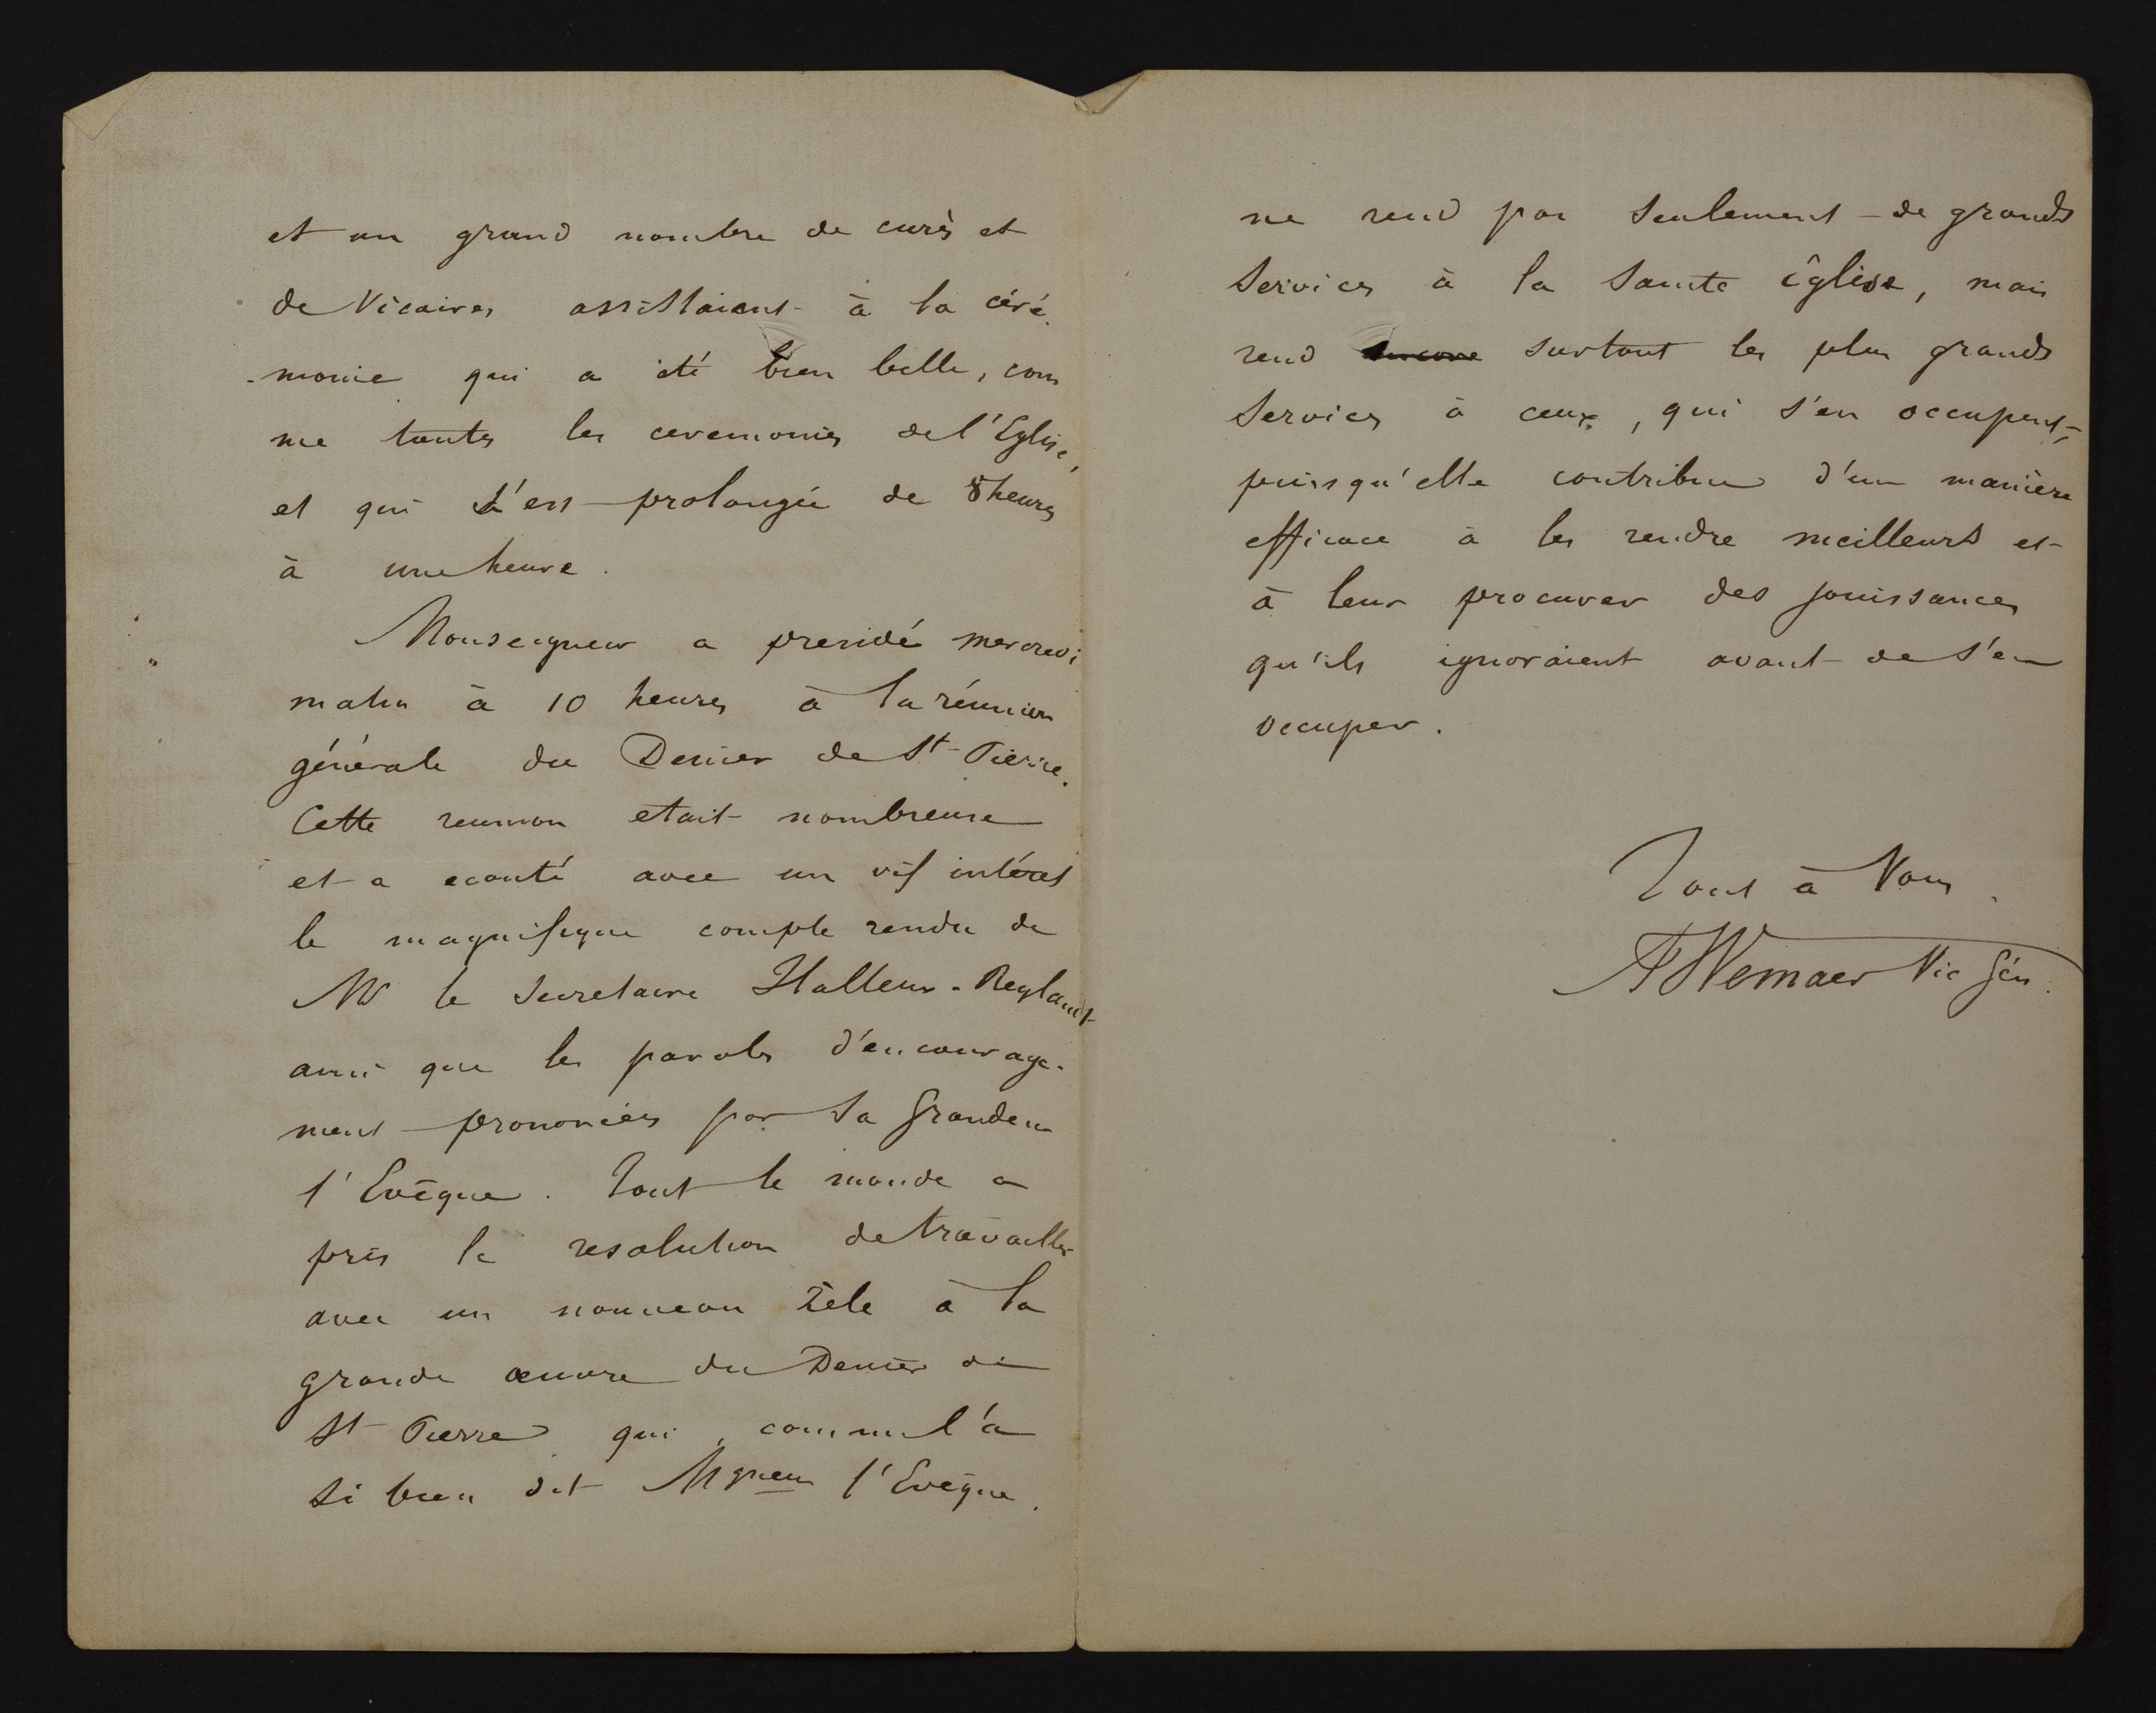 et un grand nombre de curés et
de Vicaires assistaient à la céré
-monie qui a été bien belle, com
me toutes les ceremonies de l'Eglise,
et qui s'est prolongée de 8 heures
à une heure.
Monseigneur a presidé mercredi
matin à 10 heures à la réunion
générale du Denier de St Pierre.
Cette reunion etait nombreuse
et a ecouté avec un vif intéret
le magnifique compte rendu de
Mr le Secretaire Halleux-Reylandt
ainsi que les paroles d'encourage-
ment prononcées par Sa Grandeur
l'Evêque. Tout le monde a
pris la resolution de travailler
avec un nouveau zèle à la
grande œuvre du Denier de
St Pierre qui, comme l'a
si bien dit Mgneur l'Evêque,
ne rend pas seulement de grands
services à la Sainte Eglise, mais
rend encore surtout les plus grands
services à ceux, qui s'en occupent,
puisqu'elle contribue d'une manière
efficace à les rendre meilleurs et
à leur procurer des jouissances
qu'ils ignoraient avant de s'en
occuper.
Tout à Vous.
Wemaer Vic Gén.